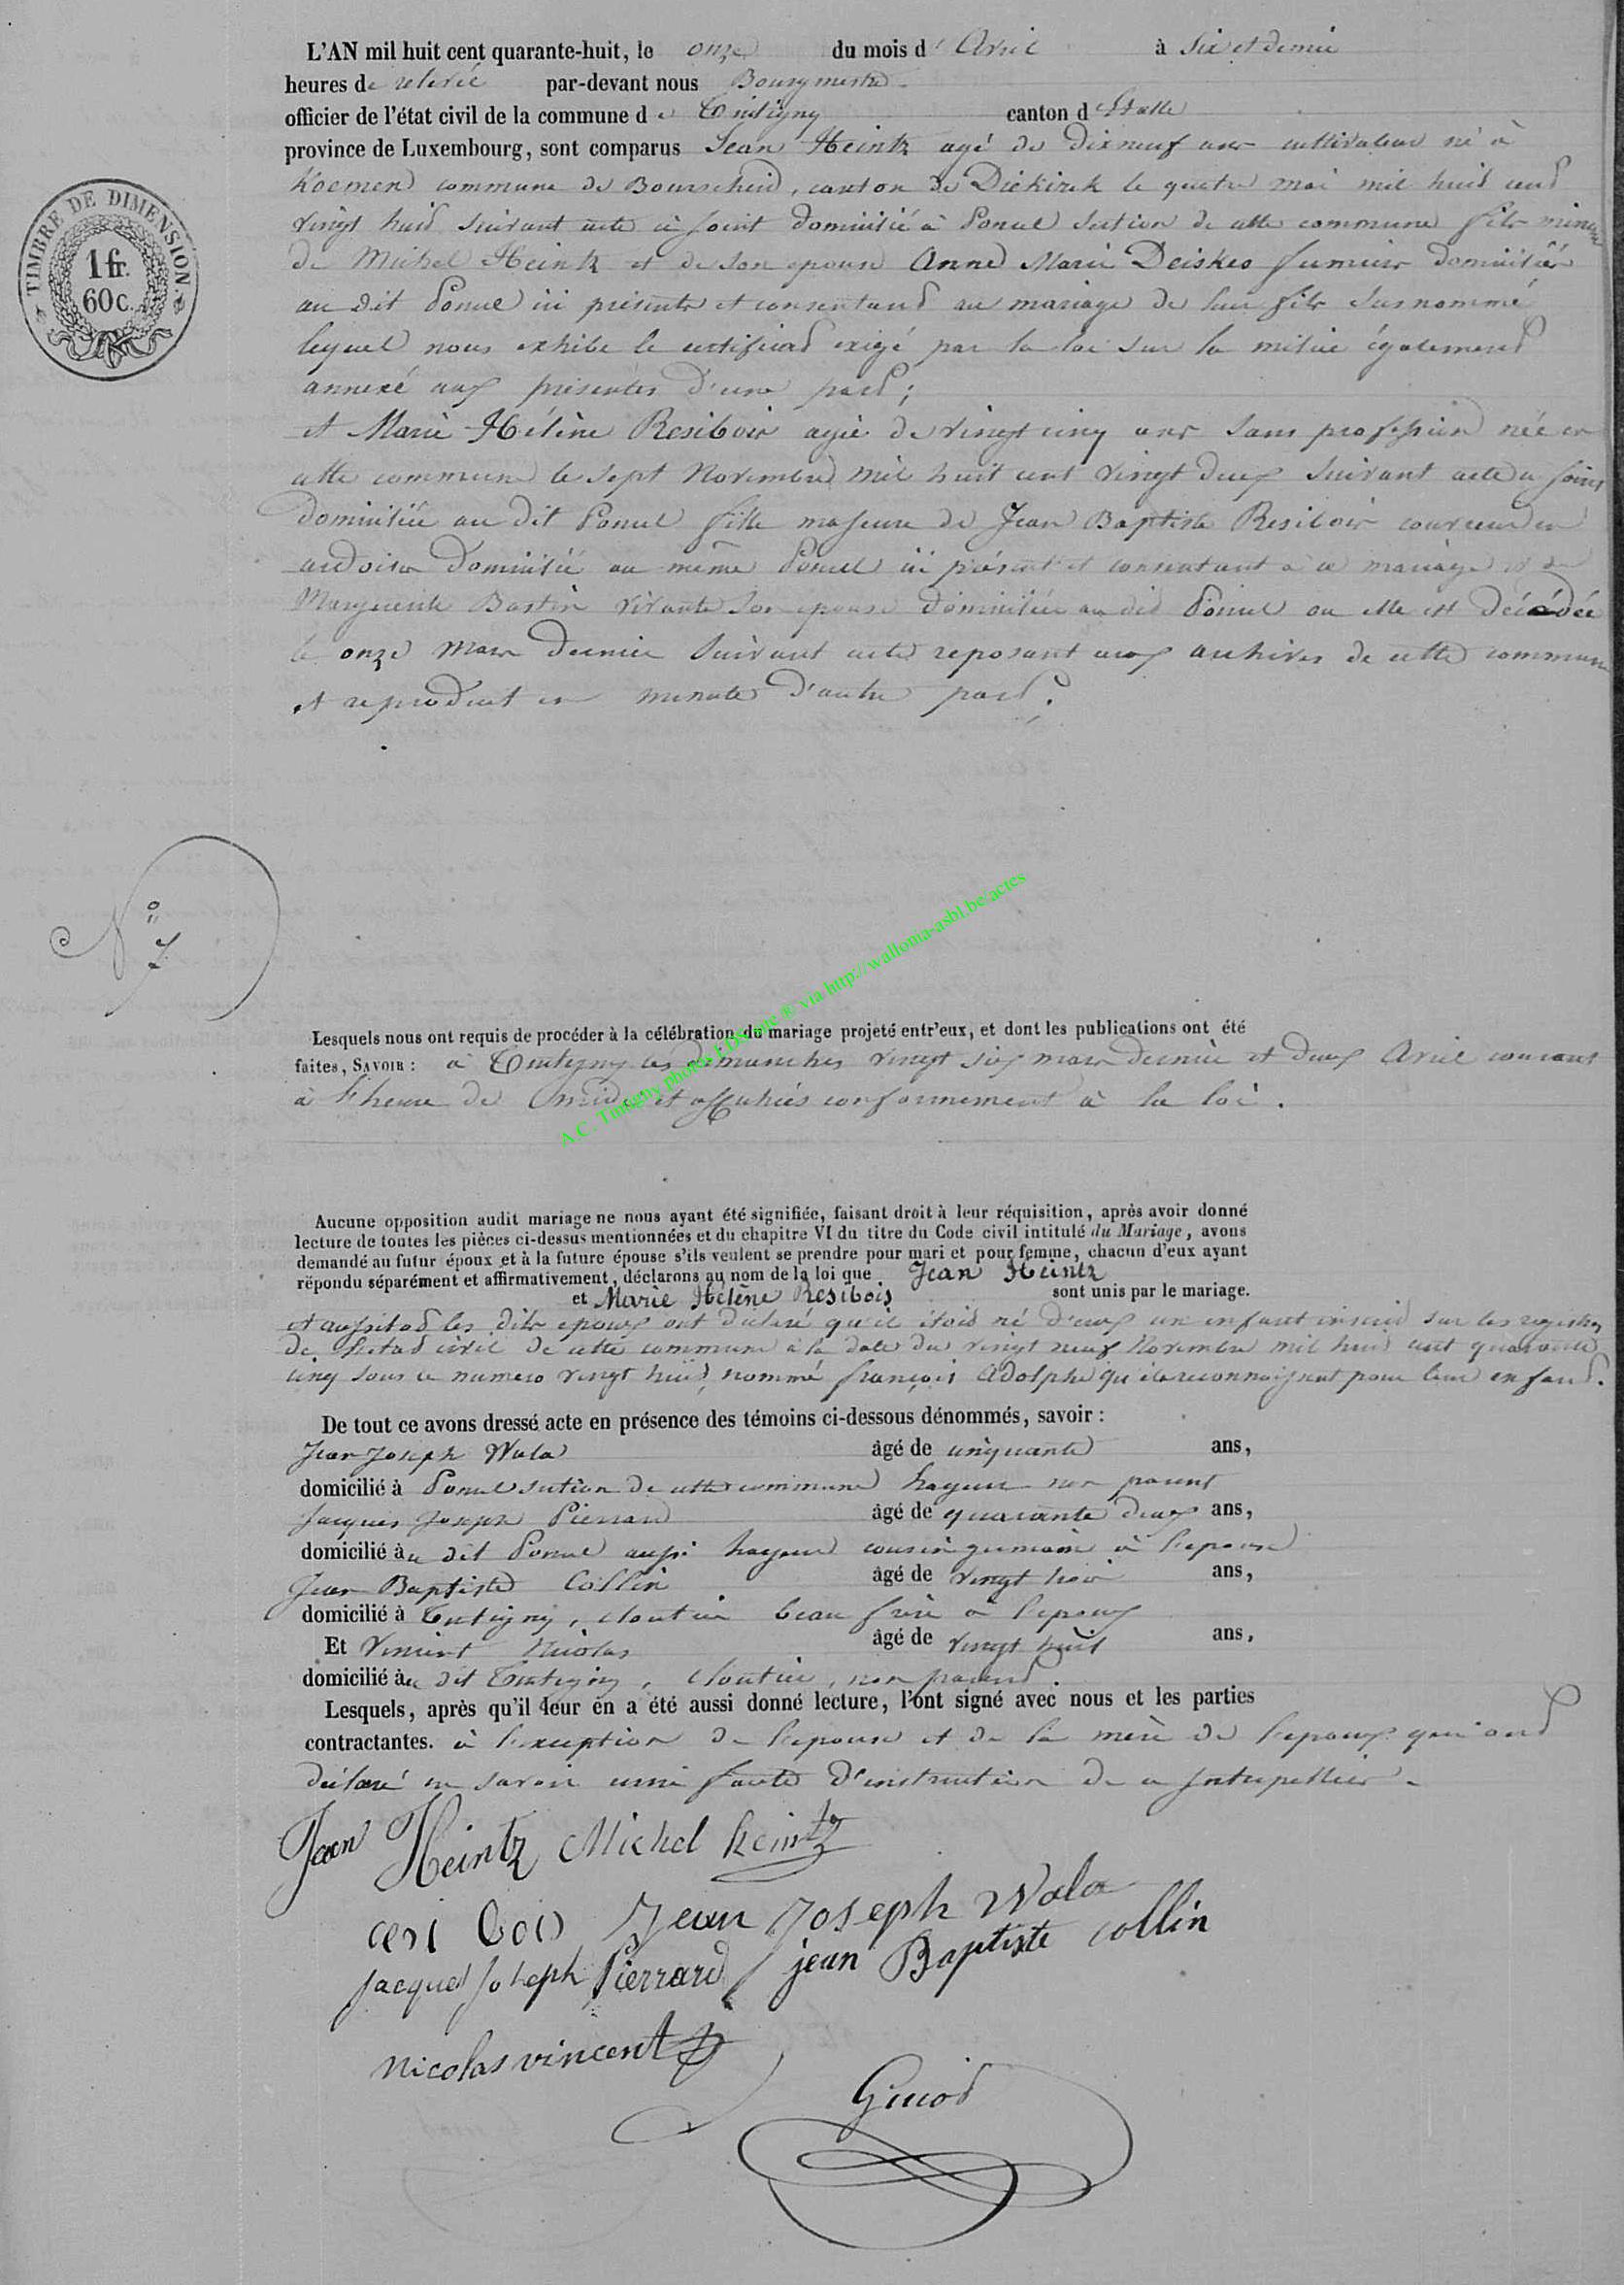 L'AN mil huit cent quarante-huit, le onze du mois d'Avril à Six et demie
heures de relevée par-devant nous Bourgmestre
officier de l'état civil de la commune de Tintigny canton d'Etalle
province de Luxembourg, sont comparus Jean Heintz agé de dix neuf ans cultivateur né à
commune de Bourscheid, canton de Diekirch le quatre mai mil huit cent
vingt huit suivant acte ci joint domicilié à section de cette commune fils mineur
de Michel Heintz et de son epouse Anne Marie Deiskes domiciliés
au dit ici présents et consentant au mariage de leur fils susnommé
lequel nous exhibe le certificat exigé par la loi sur la milice également
annexé aux présentes d'une part;
et Marie Hélène Resibois agée de vingt cinq ans sans profession née en
cette commune le sept Novembre mil huit cent vingt deux suivant acte ci joint
domiciliée au dit fille majeure de Jean Baptiste Resibois couvreur en
ardoises domicilié au même ici présent et consentant à ce mariage et de
Marguerite Bastin vivante son epouse domiciliée au dit ou elle est décédée
le onze Mars dernier suivant acte reposant aux archives de cette commune
et reproduit en minute d'autre part;
TIMBRE DE DIMENSION.
1 fr.
60 c.
N° 7
Lesquels nous ont requis de procéder à la célébration du mariage projeté entr'eux, et dont les publications ont été
faites, SAVOIR : à Tintigny les dimanches vingt six mars dernier et deux Avril courant
à l'heure de midi et affichées conformement à la loi.
A.C. Tintigny photos via http://wallonia-asbl.be/actes
Aucune opposition audit mariage ne nous ayant été signifiée, faisant droit à leur réquisition, après avoir donné
lecture de toutes les pièces ci-dessus mentionnées et du chapitre VI du titre du Code civil intitulé du Mariage, avons
demandé au futur époux et à la future épouse s'ils veulent se prendre pour mari et pour femme, chacun d'eux ayant
répondu séparément et affirmativement, déclarons au nom de la loi que Jean Heintz
et Marie Hélène Resibois sont unis par le mariage.
et aussitot les dits epoux ont déclaré qu'il était né d'eux un enfant inscrit sur les registres
de l'etat civil de cette commune à la date du vingt neuf Novembre mil huit cent quarante
cinq sous le numero vingt huit, nommé françois Adolphe qu'ils reconnaissent pour leur enfant.
De tout ce avons dressé acte en présence des témoins ci-dessous dénommés, savoir :
Jean Joseph Wala âgé de cinquante ans,
domicilié à section de cette commune non parent
Jacques Joseph Pierrard âgé de quarante deux ans,
domicilié au dit aussi cousin germain à l'epouse
Jean Baptiste Collin âgé de vingt trois ans,
domicilié à Tintigny, cloutier beau frère à l'epoux
Et Vincent Nicolas âgé de vingt huit ans,
domicilié au dit Tintigny, cloutier, non parent.
Lesquels, après qu'il leur en a été aussi donné lecture, l'ont signé avec nous et les parties
contractantes. à l'exception de l'epouse et de la mère de l'epoux qui ont
déclaré ne savoir écrire faute d'instruction de ce interpellées.
Jean Heintz Michel heintz
resi bois Jean Joseph Wala
jacques joseph Pierrard jean Baptiste collin
nicolas vincent